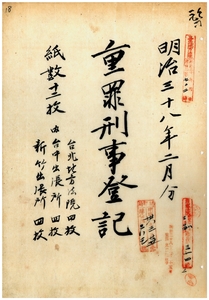 18
明治三十八年二月分
重罪刑事登記
紙数十二枚
台北地方法院 四枚
内 台中出張所 四枚
新竹出張所 四枚